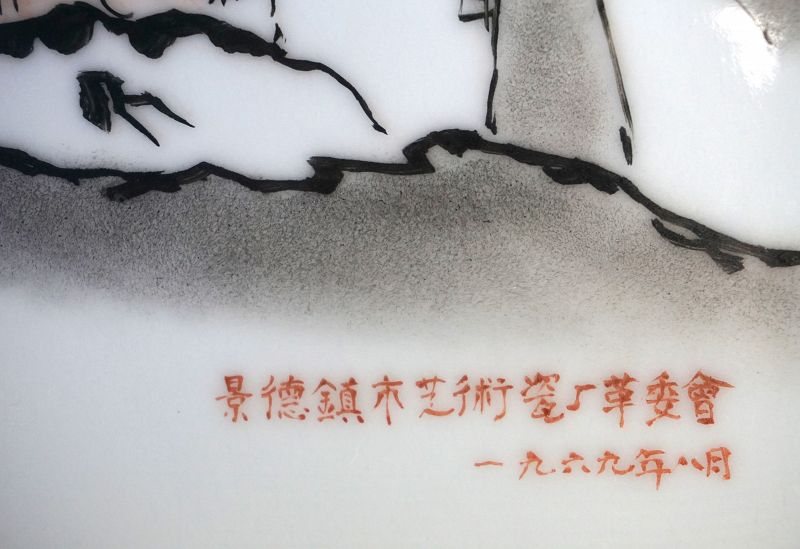 景德鎮市艺術瓷厂革委會
一九六九年八月